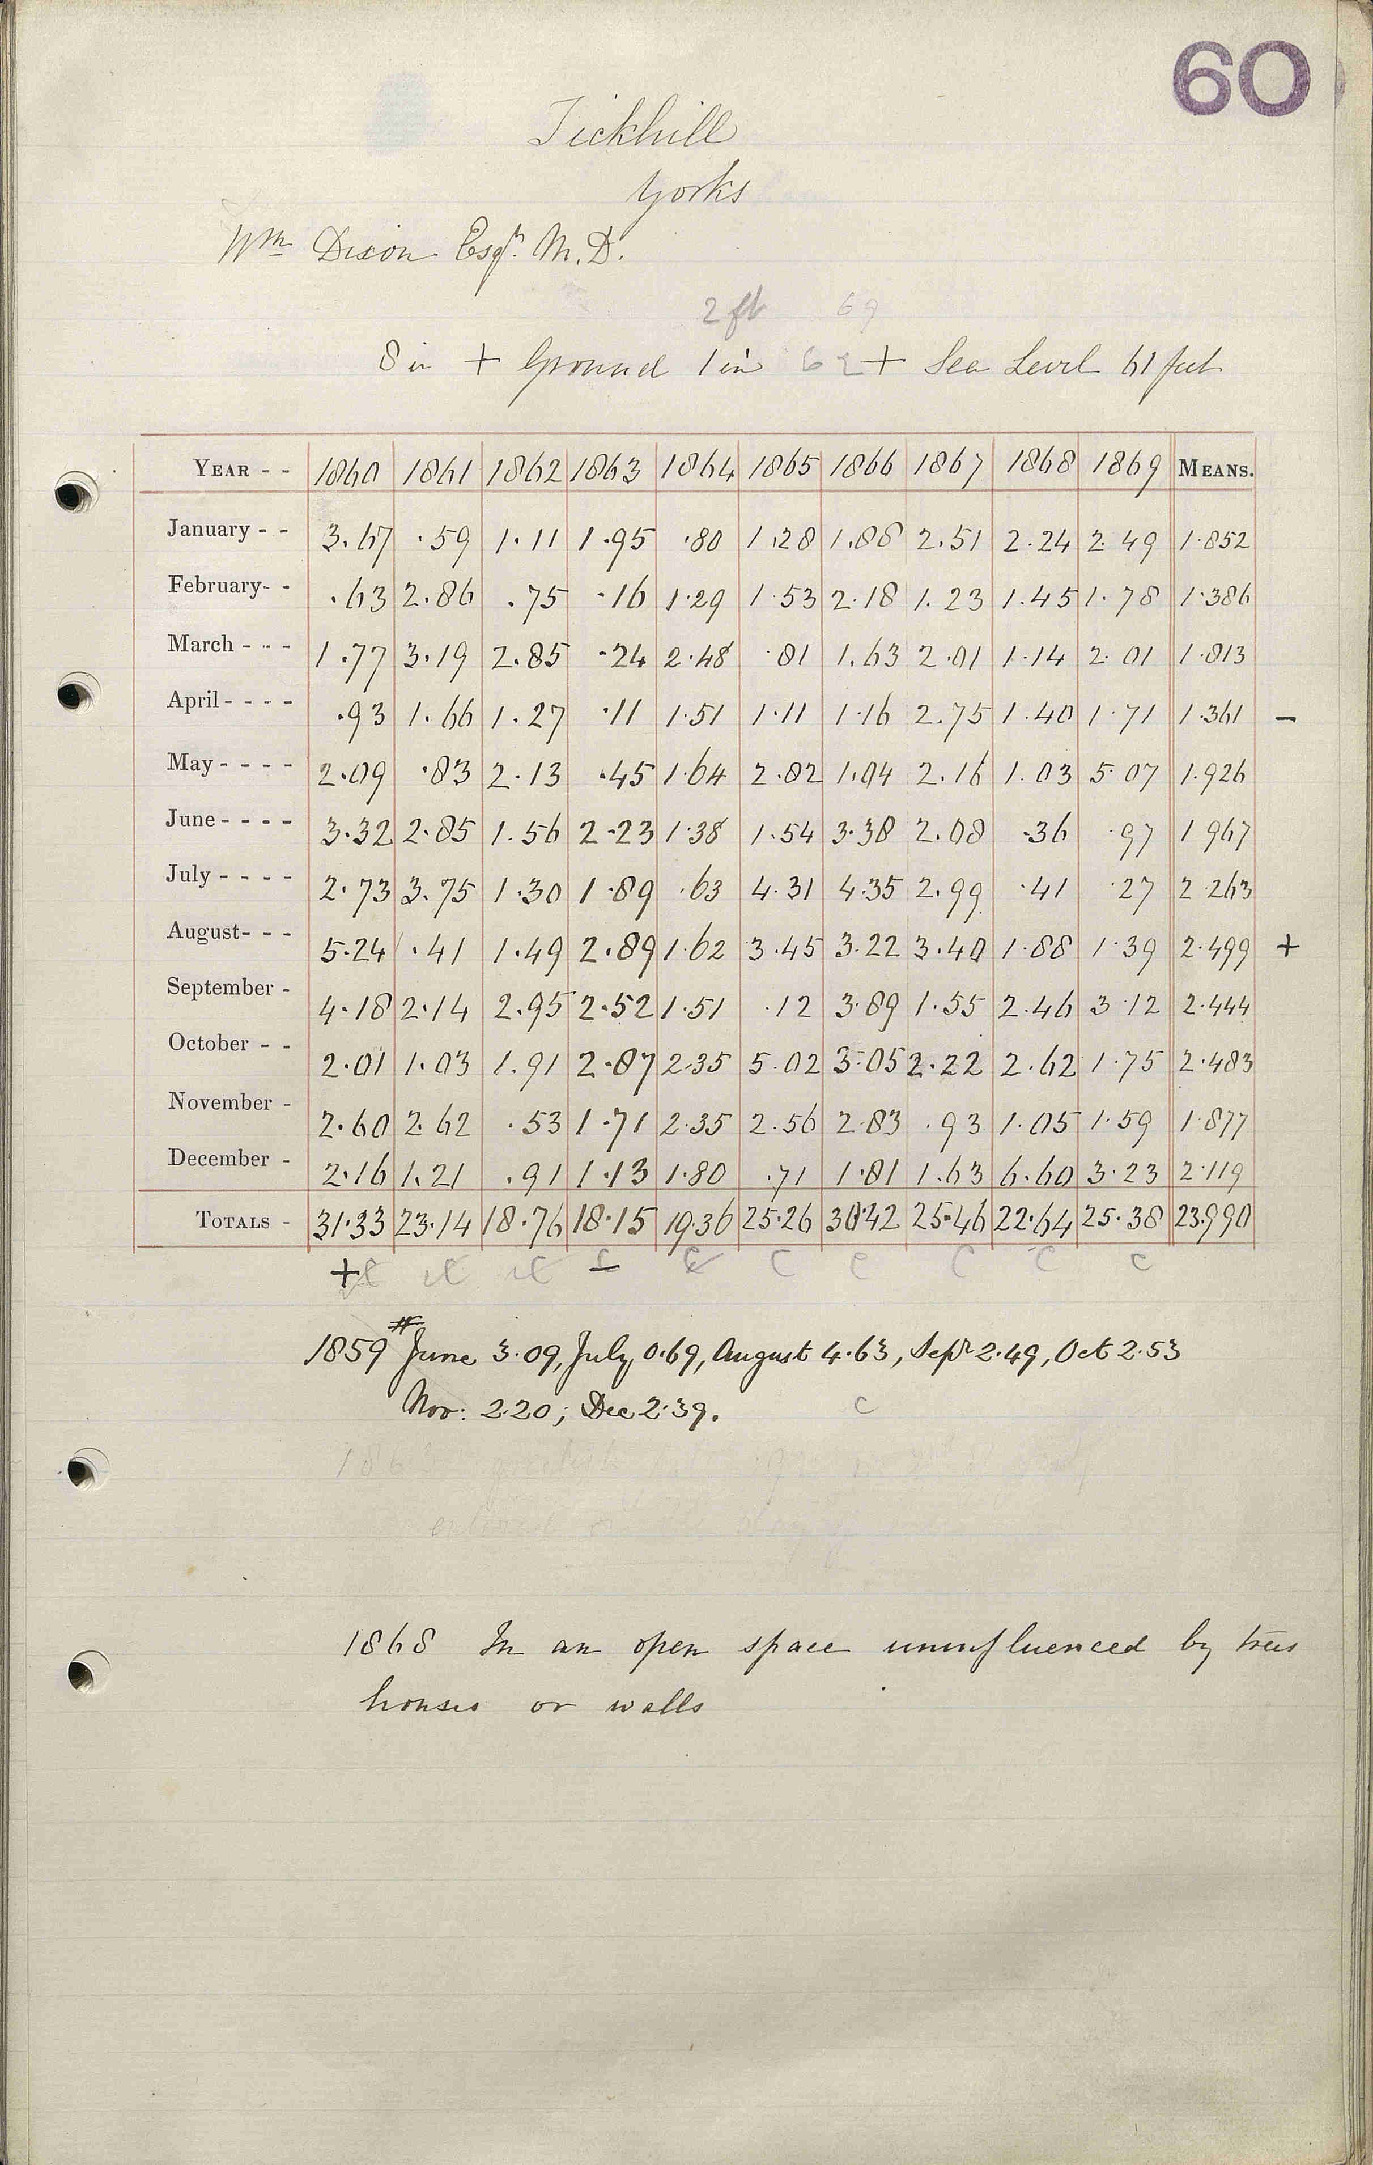 60
Tickhill
Yorks
Wm Dixon Esqr. M.D.
2 ft 69
8 in + Ground 1 in 62 + Sea Level 61 feet
YEAR - - 1860 1861 1862 1863 1864 1865 1866 1867 1868 1869 MEANS.
January - - 3.67 .59 1.11 1.95 .80 1.28 1.88 2.51 2.24 2.49 1.852
February- - .63 2.86 .75 .16 1.29 1.53 2.18 1.23 1.45 1.78 1.386
March - - - 1.77 3.19 2.85 .24 2.48 .81 1.63 2.01 1.14 2.01 1.813
April - - - - .93 1.66 1.27 .11 1.51 1.11 1.16 2.75 1.40 1.71 1.361 −
May - - - - 2.09 .83 2.13 .45 1.64 2.82 1.04 2.16 1.03 5.07 1.926
June - - - - 3.32 2.85 1.56 2.23 1.38 1.54 3.38 2.08 .36 .97 1 967
July - - - - 2.73 3.75 1.30 1.89 .63 4.31 4.35 2.99 .41 .27 2.263
August- - - 5.24 .41 1.49 2.89 1.62 3.45 3.22 3.40 1.88 1.39 2.499 +
September - 4.18 2.14 2.95 2.52 1.51 .12 3.89 1.55 2.46 3.12 2.444
October - - 2.01 1.03 1.91 2.87 2.35 5.02 3.05 2.22 2.62 1.75 2.483
November - 2.60 2.62 .53 1.71 2.35 2.56 2.83 .93 1.05 1.59 1.877
December - 2.16 1.21 .91 1.13 1.80 .71 1.81 1.63 6.60 3.23 2.119
TOTALS - 31.33 23.14 18.76 18.15 19.36 25.26 30.42 25.46 22.64 25.38 23.990
+ c c c − c c c c c c
1859 # June 3.09, July 0.69, August 4.63, Sepr 2.49, Oct 2.53
Nov: 2.20; Dec 2.39. c
1868 In an open space uninfluenced by trees
houses or walls